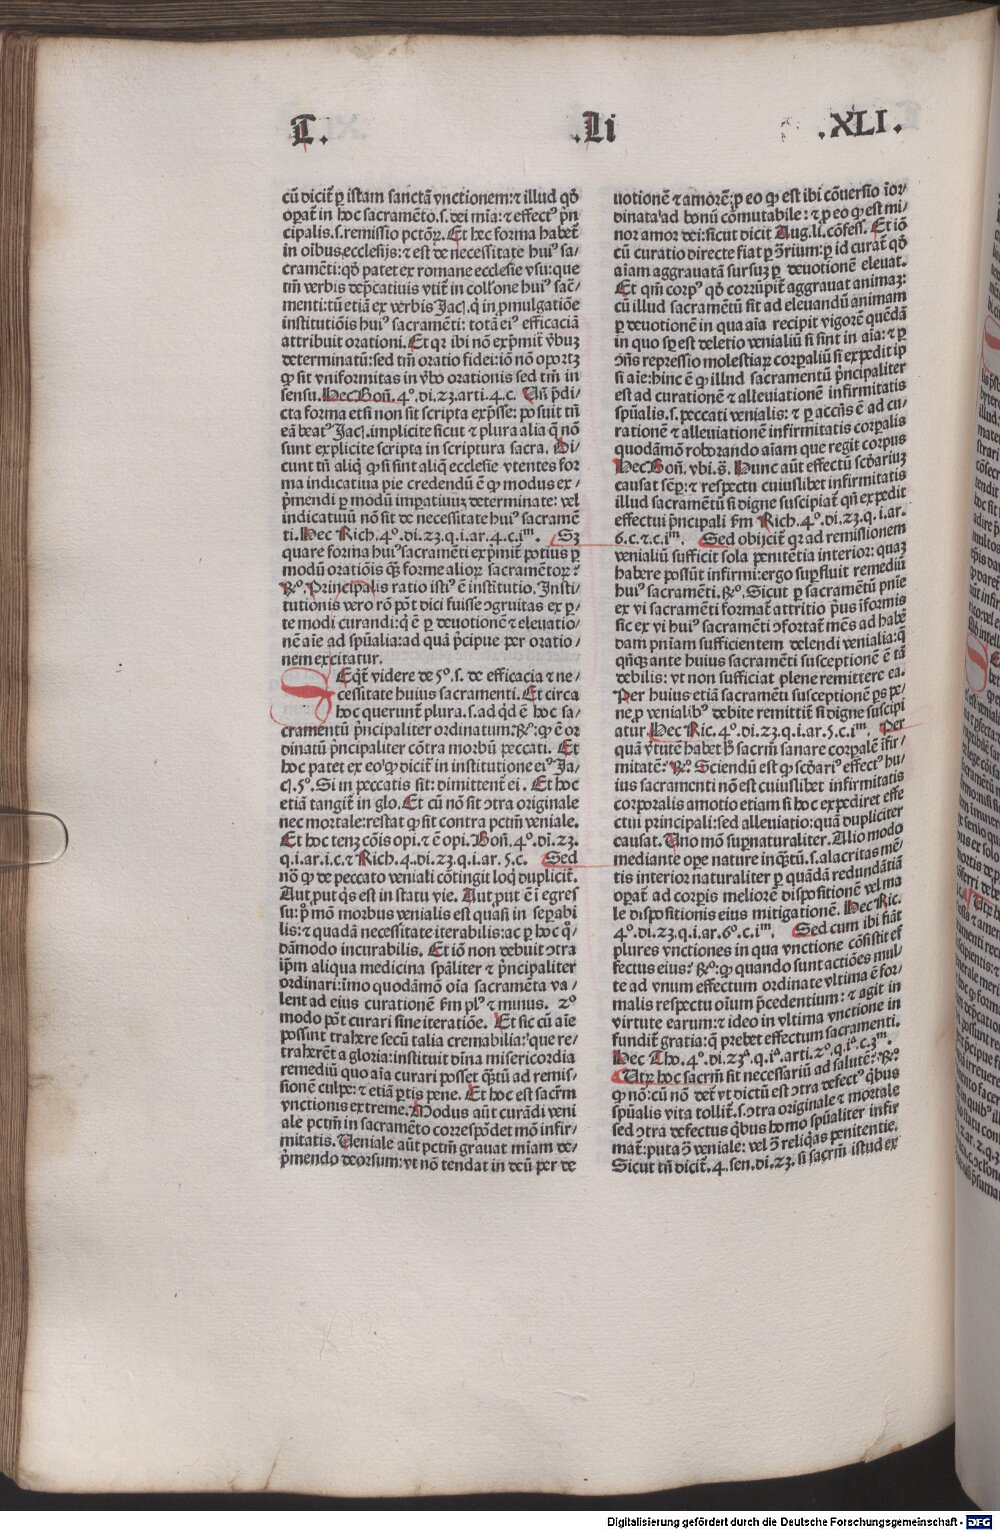 T.
.Li
.XLI.
cū dicit̄ ꝑ istam sanctā vnctionem:⁊ illud qd̄
oꝑat̄ in hoc sacramēto.s.dei mia:⁊ effectꝰ p̄n
cipalis.s.remissio pctōꝝ. Et hec forma habet̄
in oībus ecclesijs:⁊ est de necessitate huiꝰ sa⸗
cramēti:qd̄ patet ex romane ecclesie vsu:que
tm̄ verbis dep̄catiuis vtit̄ in collōne huiꝰ sac̄⸗
menti:tū etiā ex verbis Jacͥ.q̄ in ꝓmulgatiōe
institutiōis huiꝰ sacramēti: totā eiꝰ efficaciā
attribuit orationi. Et qꝛ ibi nō exp̄mit̄ v̄bum
determinatū:sed tm̄ oratio fidei:iō nō oportꝫ
ꝙ sit vniformitas in v̄bo orationis sed tm̄ in
sensu. Hec Bon̄.4º.di.23.arti.4.c. Un̄ p̄di⸗
cta forma etsi non sit scripta exp̄sse: posuit tn̄
eā beatꝰ Jacͥ.implicite sicut ⁊ plura alia q̄ nō
sunt explicite scripta in scriptura sacra. Di⸗
cunt tn̄ aliqͥ ꝙ si sint aliq̄ ecclesie vtentes for
ma indicatiua pie credendū ē ꝙ modus ex⸗
p̄mendi ꝑ modū impatiuiꝫ determinate: vel
indicatiuū nō sit de necessitate huiꝰ sacramē
ti. Hec Rich.4º.di.23.q.i.ar.4.c.iᵐ. Sꝫ
quare forma huiꝰ sacramēti exp̄mit̄ potius ꝑ
modū oratiōis qꝫ forme alioꝝ sacramētoꝝ?
Rº. Principalis ratio istiꝰ ē institutio. Insti⸗
tutionis vero rō pōt dici fuisse ↄgruitas ex ꝑ⸗
te modi curandi:q̄ ē ꝑ deuotionē ⁊ eleuatio⸗
nē aīe ad spūalia:ad quā p̄cipue per oratio⸗
nem excitatur.
SEqͥt̄ videre de 5º.s. de efficacia ⁊ ne⸗
cessitate huius sacramenti. Et circa
hoc querunt̄ plura.s.ad qͥd ē hoc sa⸗
cramentū p̄ncipaliter ordinatum:Rº:ꝙ ē or
dinatū p̄ncipaliter cōtra morbū peccati. Et
hoc patet ex eoꝙ dicit̄ in institutione eiꝰ Ja⸗
cͥ.5º. Si in peccatis sit: dimittent̄ ei. Et hoc
etiā tangit̄ in glo. Et cū nō sit ↄtra originale
nec mortale:restat ꝙ sit contra pctm̄ veniale.
Et hoc tenꝫ cōis opi.⁊ ē opi. Bon̄.4º.di.23.
q.i.ar.i.c.⁊ Rich.4.di.23.q.i.ar.5.c. Sed
nō qͦ de peccato veniali cōtingit loqͥ dupliciter̄.
Aut ꝓut qͥs est in statu vie. Aut ꝓut ē ī egres
su:pͥ mō morbus venialis est quasi in seꝑabi
lis:⁊ quadā necessitate iterabilis:ac ꝑ hoc qͦ⸗
dāmodo incurabilis. Et iō non debuit ↄtra
ip̄m aliqua medicina sp̄aliter ⁊ p̄ncipaliter
ordinari:īmo quodāmō oīa sacramēta va⸗
lent ad eius curationē fm plꝰ ⁊ minus. 2º
modo pōt curari sine iteratiōe. Et sic cū aīe
possint trahere secū talia cremabilia:que re⸗
traherēt a gloria:instituit dīna misericordia
remediū quo aīa curari posset qꝫtū ad remis⸗
sionē culpe:⁊ etiā ꝑtis pene. Et hoc est sacr̄m
vnctionis extreme. Modus aūt curādi veni
ale pctm̄ in sacramēto correspōdet mō infir⸗
mitatis. Ueniale aūt pctm̄ grauat aīam de⸗
p̄mendo deorsum:vt nō tendat in deū per de
uotionē ⁊ amorē:ꝓ eo ꝙ est ibi cōuersio īor⸗
dinata ad bonū cōmutabile:⁊ ꝓ eo ꝙ est mi⸗
nor amor dei:sicut dicit Aug.li.cōfess. Et iō
cū curatio directe fiat ꝑ ↄrium:ꝑ id curat̄ qd̄
aīam aggrauatā sursuꝫ ꝑ deuotionē eleuat.
Et qm̄ corpꝰ qd̄ corrūpit̄ aggrauat animaꝫ:
cū illud sacramētū sit ad eleuandū animam
ꝑ deuotionē in qua aīa recipit vigorē quēdā
in quo sp̄ est deletio venialiū si sint in aīa:⁊ ꝑ
ↄn̄s repressio molestiaꝝ corꝑaliū si expedit ip
si aīe:hinc ē ꝙ illud sacramentū p̄ncipaliter
est ad curationē ⁊ alleuiationē infirmitatis
spūalis.s.peccati venialis:⁊ ꝑ accn̄s ē ad cu⸗
rationē ⁊ alleuiationē infirmitatis corꝑalis
quodāmō roborando aīam que regit corpus
Hec Bon̄. vbi.s̄. Hunc aūt effectū scd̄ariuꝫ
causat sēꝑ:⁊ respectu cuiuslibet infirmitatis
illud sacramētū si digne suscipiat̄ qn̄ expedit
effectui p̄ncipali fm Rich.4º.di.23.q.i.ar.
6.c.⁊.c.iᵐ. Sed obijcit̄ qꝛ ad remissionem
venialiū sufficit sola penitētia interior: quaꝫ
habere possūt infirmi:ergo suꝑfluit remediū
huiꝰ sacramēti.Rº. Sicut ꝑ sacramētū pn̄ie
ex vi sacramēti format̄ attritio pͥus īformis
sic ex vi huiꝰ sacramēti ↄfortat̄ mēs ad habē
dam pn̄iam sufficientem delendi venialia:q̄
qn̄qꝫ ante huius sacramēti susceptionē ē tā
debilis: vt non sufficiat plene remittere ea.
Per huius etiā sacramētu susceptionē ꝑs pe⸗
ne ꝓ venialibꝰ debite remittit̄ si digne suscipi
atur. Hec Ric.4º.di.23.q.i.ar.5.c.iᵐ. Per
quā v̄tutē habet h̄ sacr̄m sanare corꝑalē īfir⸗
mitatē:Rº. Sciendū est ꝙ scd̄ariꝰ effectꝰ hu⸗
ius sacramenti nō est cuiuslibet infirmitatis
corporalis amotio etiam si hoc expediret effe
ctui principali:sed alleuatio:quā dupliciter
causat. Uno mō supnaturaliter. Alio modo
mediante ope nature inqꝫtū.s.alacritas mē⸗
tis interior naturaliter ꝑ quādā redundātiā
opat̄ ad corꝑis meliorē dispositionē vel ma
le dispositionis eius mitigationē. Hec Ric.
4º.di.23.q.i.ar.6º.c.iᵐ. Sed cum ibi fiāt
plures vnctiones in qua vnctione cōsistit ef
fectus eius?Rº:ꝙ quando sunt actiōes mul⸗
te ad vnum effectum ordinate vltima ē for⸗
malis respectu oīum p̄cedentium:⁊ agit in
virtute earum:⁊ ideo in vltima vnctione in
fundit̄ gratia:q̄ prebet effectum sacramenti.
Hec Tho.4º.di.23ª.q.iª.arti.2º.q.iª.c.3ᵐ.
Utꝝ hoc sacr̄m sit necessariū ad salutē?Rº
ꝙ nō:cū nō det̄ vt dictū est ↄtra defectꝰ qͥbus
spūalis vita tollit̄.s.ↄtra originale ⁊ mortale
sed ↄtra defectus qͥbus homo spūaliter infir
mat̄:puta ↄͣ veniale: vel ↄͣ reliqͥas penitentie.
Sicut tn̄ dicit̄.4.sen.di.23. si sacr̄m istud ex
Digitalisierung gefördert durch die Deutsche Forschungsgemeinschaft - DFG